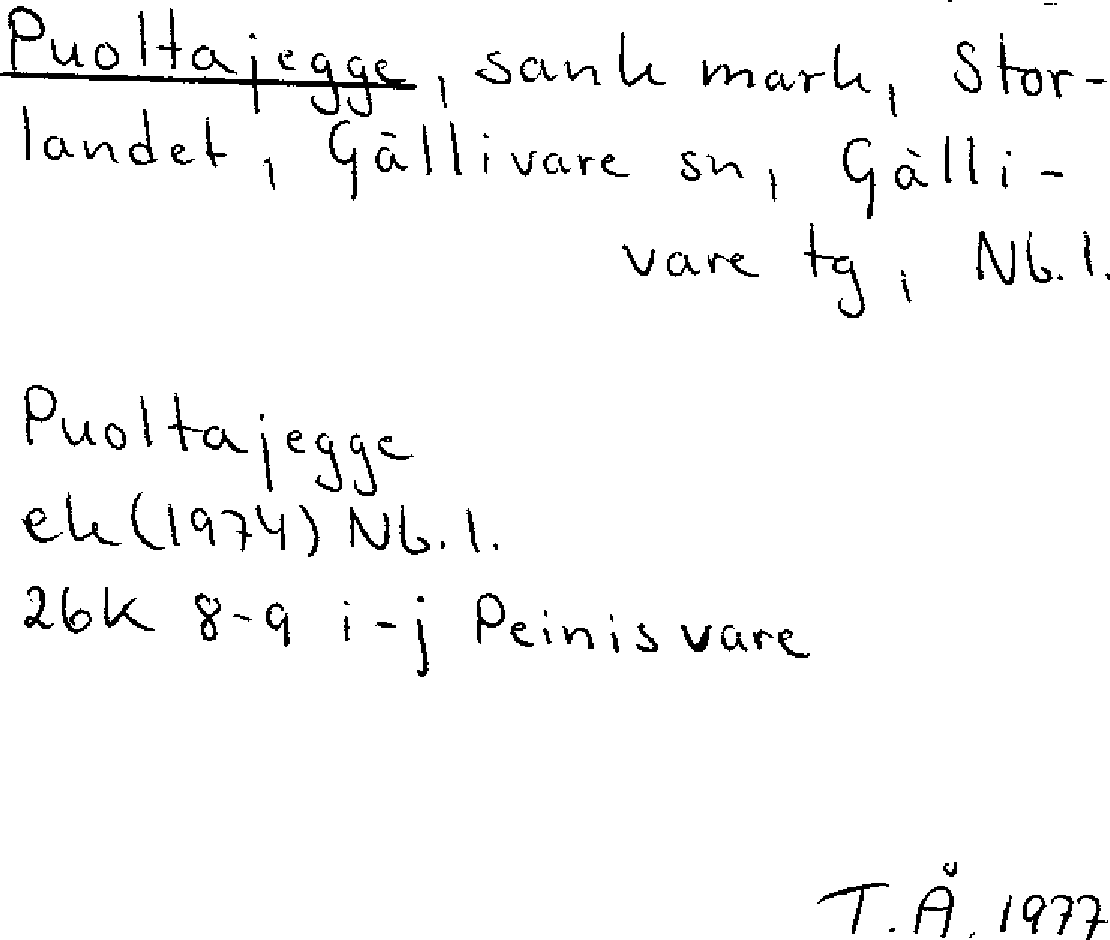 Puoltajegge, sank mark, Stor-
landet, Gällivare sn, Gälli-
vare tg, Nb. l.
Puoltajegge
ek (1974) Nb. l.
26K 8-9 i-j Peinisvare
T.Å. 1977